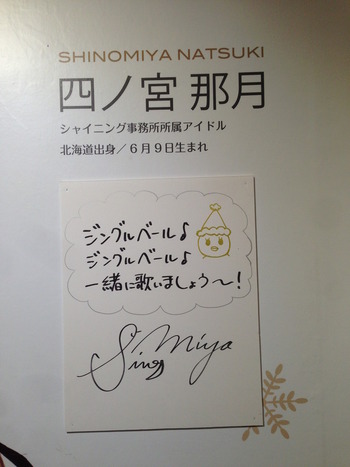 SHINOMIYA NATSUKI
四ノ宮 那月
シャイニング事務所所属アイドル
北海道出身／6月9日生まれ
ジングルベール♪
ジングルベール♪
一緒に歌いましょう〜!
Sing Miya